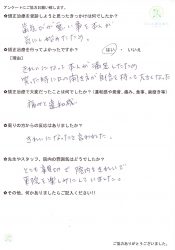 アンケートにご協力お願い致します。
●矯正治療を受診しようと思ったきっかけは何でしたか？
歯並びが悪い事を本人が
気にし始めたため。
●矯正治療を行ってよかったですか？ はい・いいえ
きれいになって本人が満足したのと
笑った時に口の開き方が自信を持って大きくなった
●矯正治療で大変だったことは何でしたか？（違和感や発音、痛み、食事、歯磨き等）
痛みと違和感。
●周りの方からの反応はありましたか？
きれいになったと言われた。
●先生やスタッフ、院内の雰囲気はどうでしたか？
とても親切で 院内もきれいで
来院を楽しみにしていました。
●その他、何かありましたらご記入ください!!
ご協力ありがとうございました。